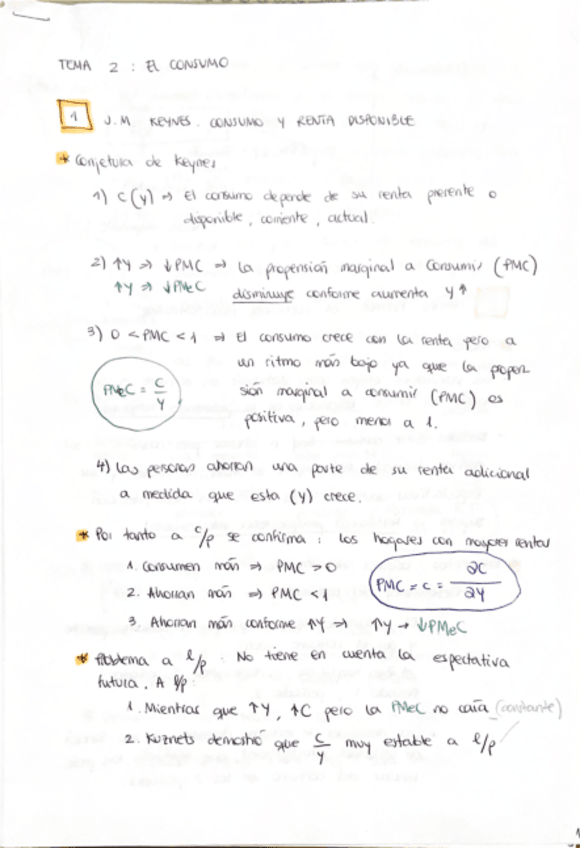 TEMA 2 : EL CONSUMO
1 J.M. KEYNES. CONSUMO Y RENTA DISPONIBLE
* Conjetura de Keynes
1) C(y) ⇒ El consumo depende de su renta presente o
disponible, corriente, actual.
2) ↑Y ⇒ ↓PMC ⇒ La propensión marginal a consumir (PMC)
↑Y ⇒ ↓PMeC disminuye conforme aumenta Y↑
3) 0 < PMC < 1 ⇒ El consumo crece con la renta pero a
un ritmo más bajo ya que la propen
PMeC = C/Y sión marginal a consumir (PMC) es
positiva, pero menor a 1.
4) Las personas ahorran una parte de su renta adicional
a medida que esta (Y) crece.
* Por tanto a c/p se confirma : los hogares con mayores rentas
1. Consumen más ⇒ PMC > 0
PMC = c = ∂C/∂Y
2. Ahorran más ⇒ PMC < 1
3. Ahorran más conforme ↑Y ⇒ ↑Y → ↓PMeC
* Problema a l/p : No tiene en cuenta la espectativa
futura. A l/p:
1. Mientras que ↑Y, ↑C pero la PMeC no caía (constante)
2. Kuznets demostró que C/Y muy estable a l/p
1